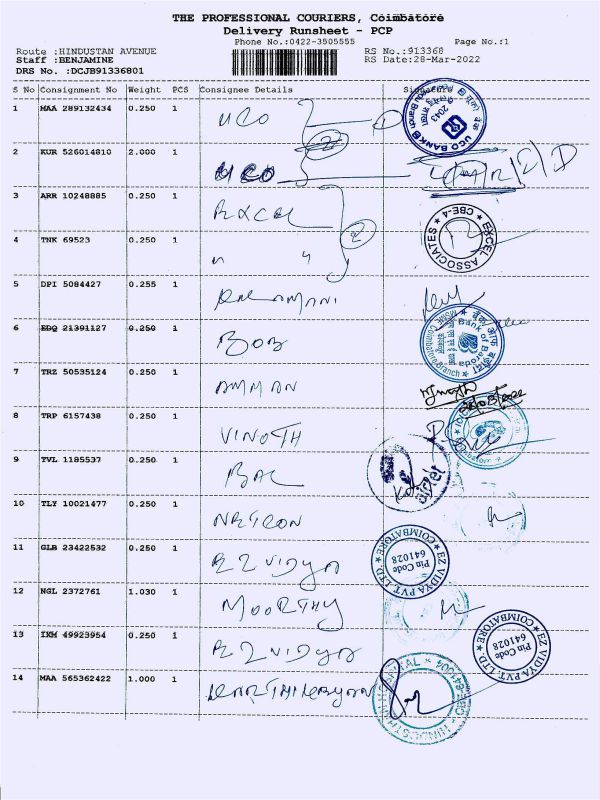 THE PROFESSIONAL COURIERS, Coimbatore
Delivery Runsheet - PCP
Phone No.:0422-3505555 Page No.:1
Route :HINDUSTAN AVENUE RS No.:913368
Staff :BENJAMINE RS Date:28-Mar-2022
DRS No. :DCJB91336801
S No Consignment No Weight PCS Consignee Details Signature
1 MAA 289132434 0.250 1 UCO
UCO BANK
2043
2 KUR 526014810 2.000 1 UCO
3 ARR 10248885 0.250 1 EXCEL
2
EXCEL ASSOCIATES ★ CBE-4 ★
4 TNK 69523 0.250 1 " "
5 DPI 5084427 0.255 1
6 EDQ 21391127 0.250 1 BOB
Bank of Baroda
Coimbatore Branch
7 TRZ 50535124 0.250 1 AMMAN
8 TRP 6157438 0.250 1 VINOTH
9 TVL 1185537 0.250 1 BAL
10 TLY 10021477 0.250 1
11 GLB 23422532 0.250 1 EZ VIDYA
EZ VIDYA PVT. LTD. ★ COIMBATORE ★
Pin Code
641028
12 NGL 2372761 1.030 1 MOORTHY
13 IXM 49923954 0.250 1 EZ VIDYA
EZ VIDYA PVT. LTD. ★ COIMBATORE ★
Pin Code
641028
14 MAA 565362422 1.000 1 KARTHIKEYAN